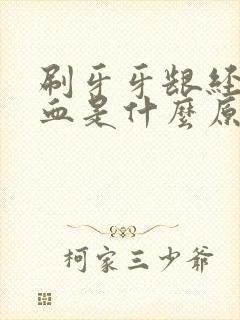 刷牙牙龈经
血是什麼原
柯家三少爷